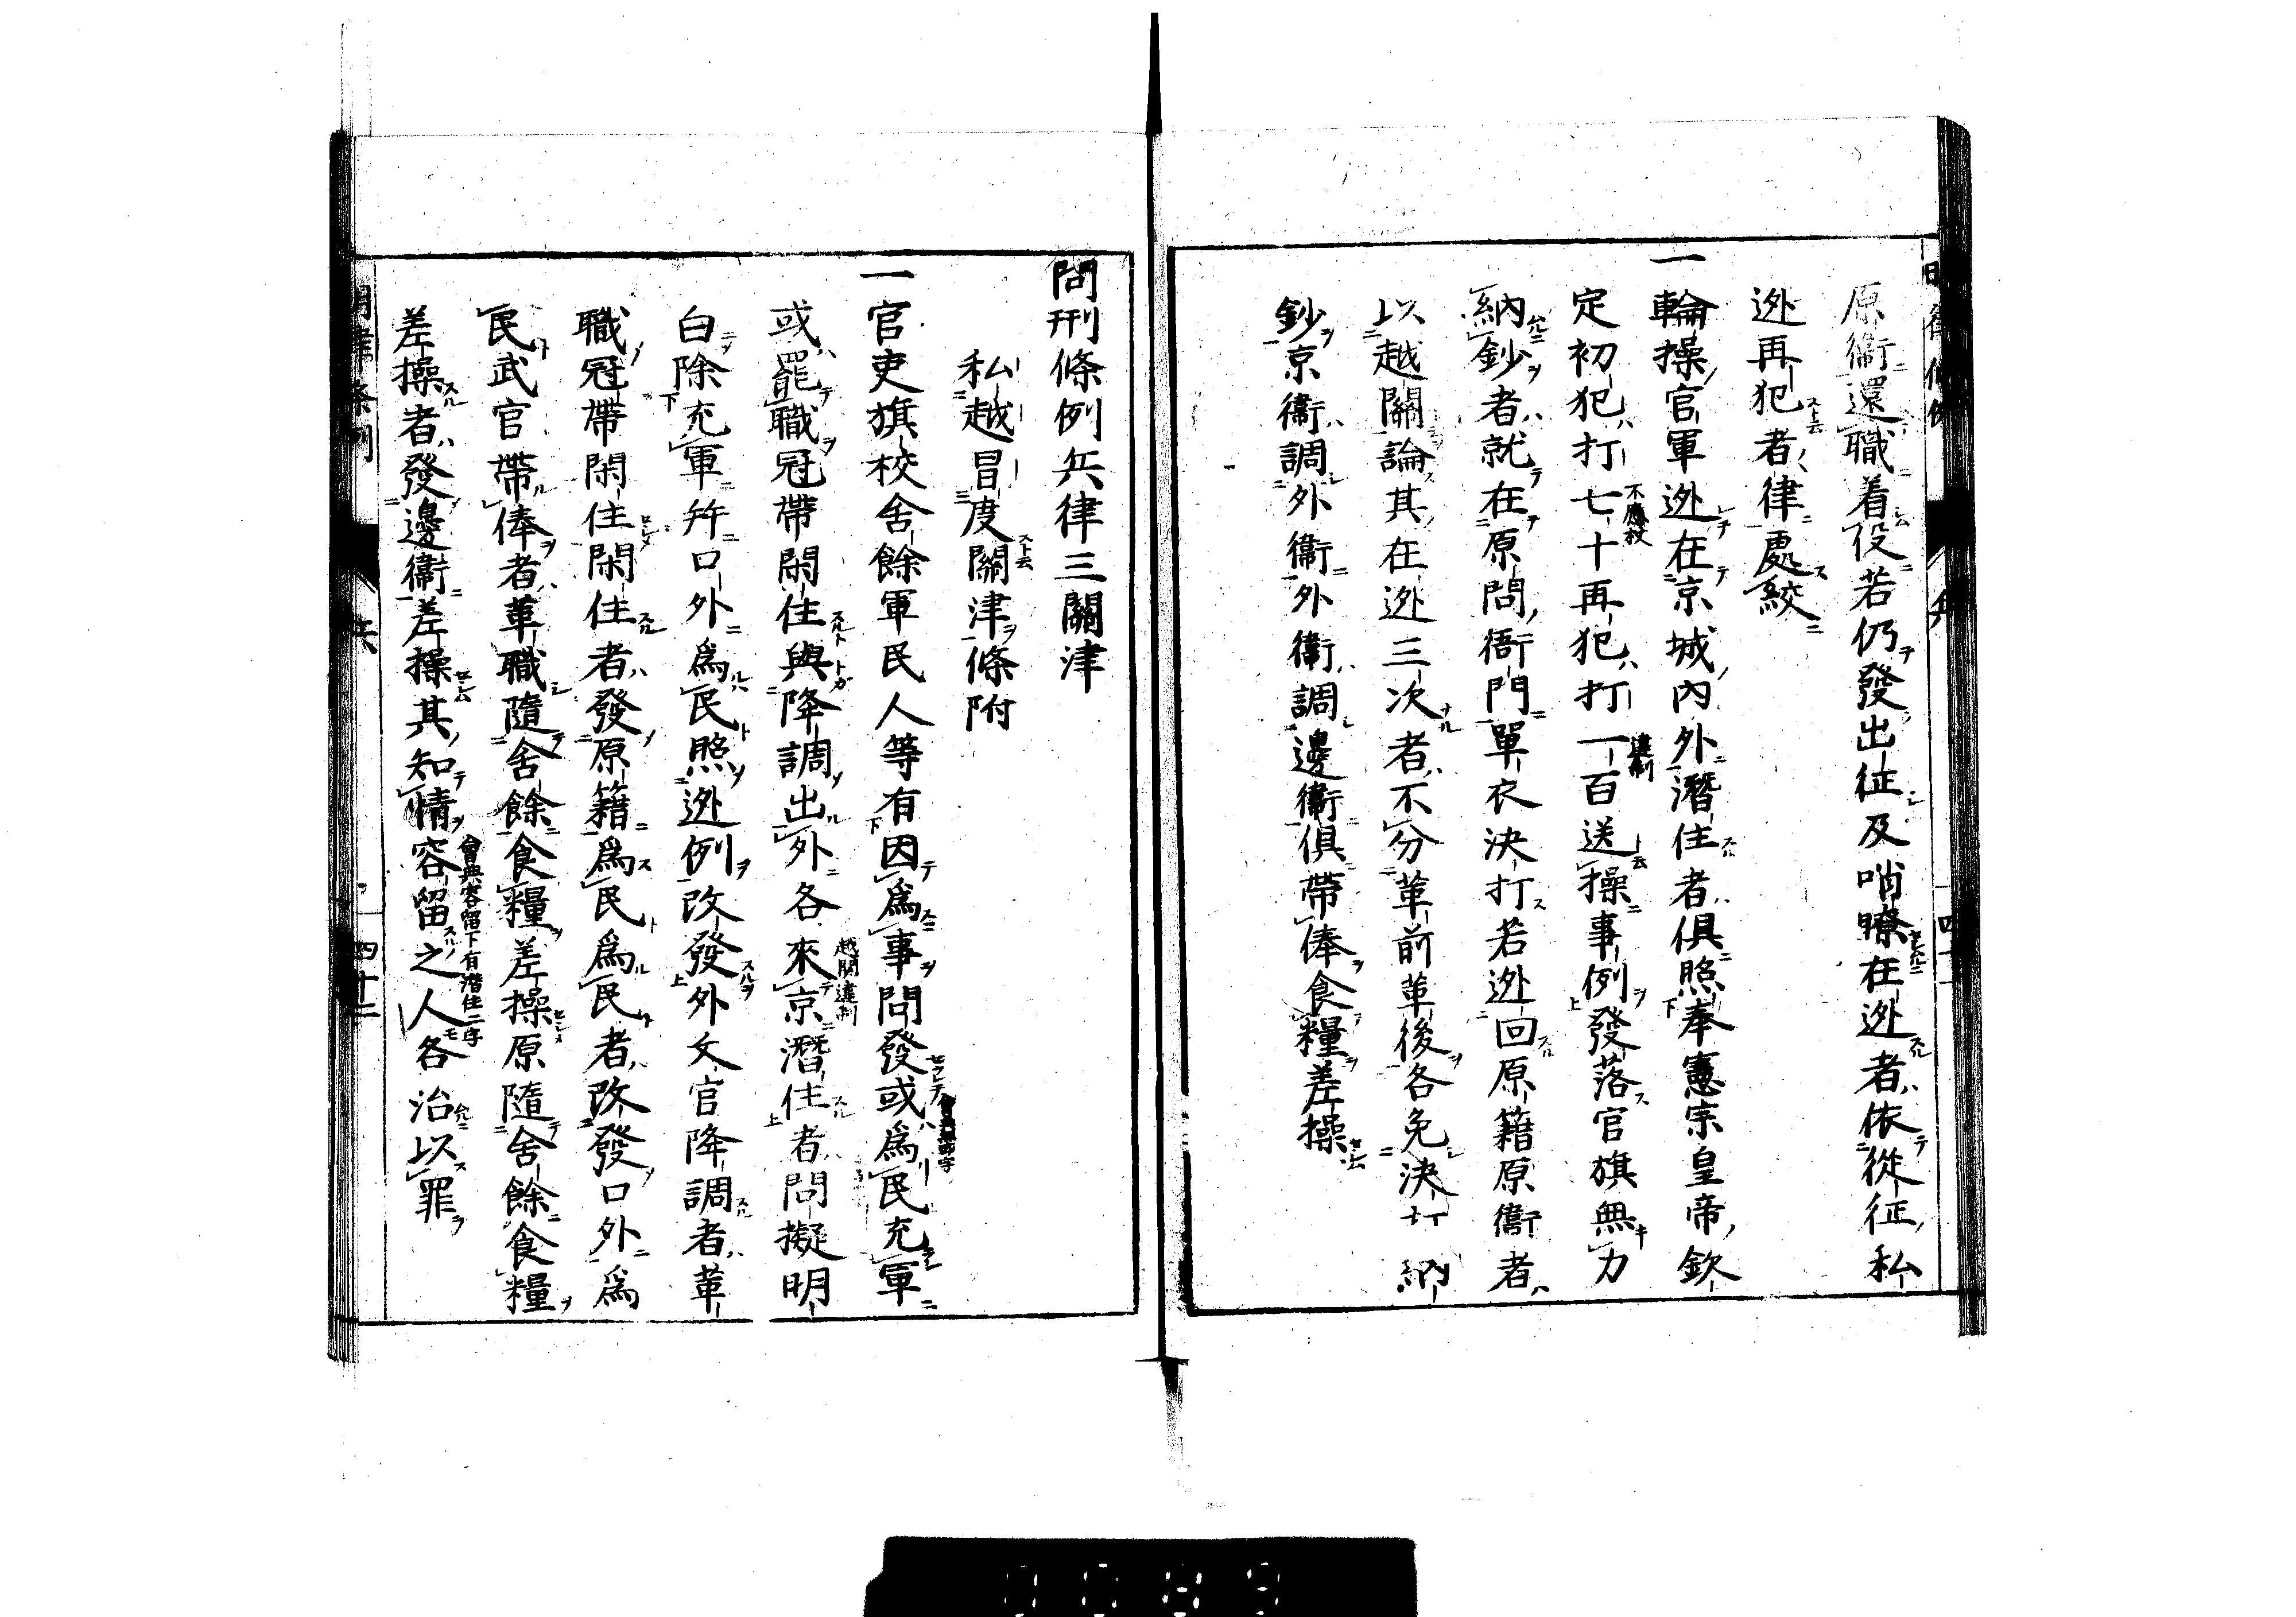 原衞還職着役若仍發出征及哨瞭在逊者依從征私
逊再犯者律處絞
一輪操官軍逊在京城內外潛住者俱照奉憲宗皇帝欽
定初犯打七十再犯打一百送操事例發落官旗無力
不應杖
違制
納鈔者就在原問衙門單衣決打若逊回原籍原衞者
以越關論其在逊三次者不分革前革後各免決打納
鈔京衞調外衞外衞調邊衞俱帶俸食糧差操
問刑條例兵律三關津
私越冒度關津條附
一官吏旗校舍餘軍民人等有因爲事問發或爲民充軍
或罷職冠帶閑住與降調出外各來京潛住者問擬明
越關違制
白除充軍幷口外爲民照逊例改發外文官降調者革
職冠帶閑住閑住者發原籍爲民爲民者改發口外爲
民武官帶俸者革職隨舍餘食糧差操原隨舍餘食糧
差操者發邊衞差操其知情容留之人各治以罪
會典容留下有潛住二字
明律條例
兵
四十二